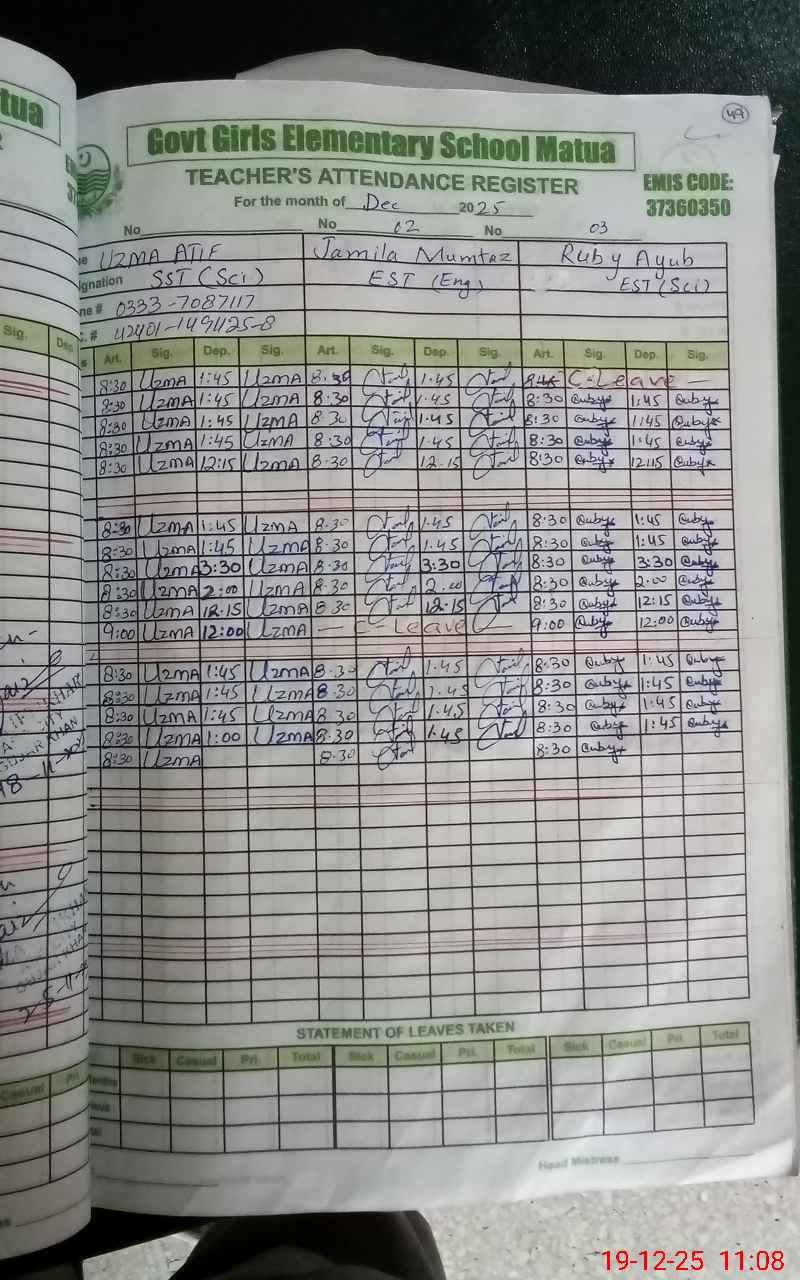 tua
49
Govt Girls Elementary School Matua
TEACHER'S ATTENDANCE REGISTER
EMIS CODE:
37360350
For the month of Dec 2025
No No 02 No 03
UZMA ATIF Jamila Mumtaz Ruby Ayub
ignation SST (Sci) EST (Eng) EST (Sci)
ne # 0333-7087117
C. # 42401-1491125-8
Sig. Dep.
Art. Sig. Dep. Sig. Art. Sig. Dep. Sig. Art. Sig. Dep. Sig.
8:30 UZMA 1:45 UZMA 8:30 1.45 C-Leave
8:30 UZMA 1:45 UZMA 8:30 1.45 8:30 Ruby 1:45 Ruby
8:30 UZMA 1:45 UZMA 8:30 1.45 8:30 Ruby 1:45 Ruby
8:30 UZMA 1:45 UZMA 8:30 1.45 8:30 Ruby 1:45 Ruby
8:30 UZMA 12:15 UZMA 8.30 12.15 8:30 Ruby 12:15 Ruby
8:30 UZMA 1:45 UZMA 8.30 1.45 8:30 Ruby 1:45 Ruby
8:30 UZMA 1:45 UZMA 8.30 1.45 8:30 Ruby 1:45 Ruby
8:30 UZMA 3:30 UZMA 8.30 3:30 8:30 Ruby 3:30 Ruby
8:30 UZMA 2:00 UZMA 8.30 2.00 8:30 Ruby 2.00 Ruby
8:30 UZMA 12.15 UZMA 8.30 12.15 8:30 Ruby 12:15 Ruby
9:00 UZMA 12:00 UZMA — C-Leave — 9:00 Ruby 12:00 Ruby
8:30 UZMA 1:45 UZMA 8.30 1.45 8:30 Ruby 1:45 Ruby
8:30 UZMA 1:45 UZMA 8.30 1.45 8:30 Ruby 1:45 Ruby
8:30 UZMA 1:45 UZMA 8.30 1.45 8:30 Ruby 1:45 Ruby
8:30 UZMA 1:00 UZMA 8:30 1.45 8:30 Ruby 1:45 Ruby
8:30 UZMA 8.30 8:30 Ruby
STATEMENT OF LEAVES TAKEN
Sick Casual Pri. Total Sick Casual Pri. Total Sick Casual Pri. Total
Casual Pri
Head Mistress
19-12-25 11:08